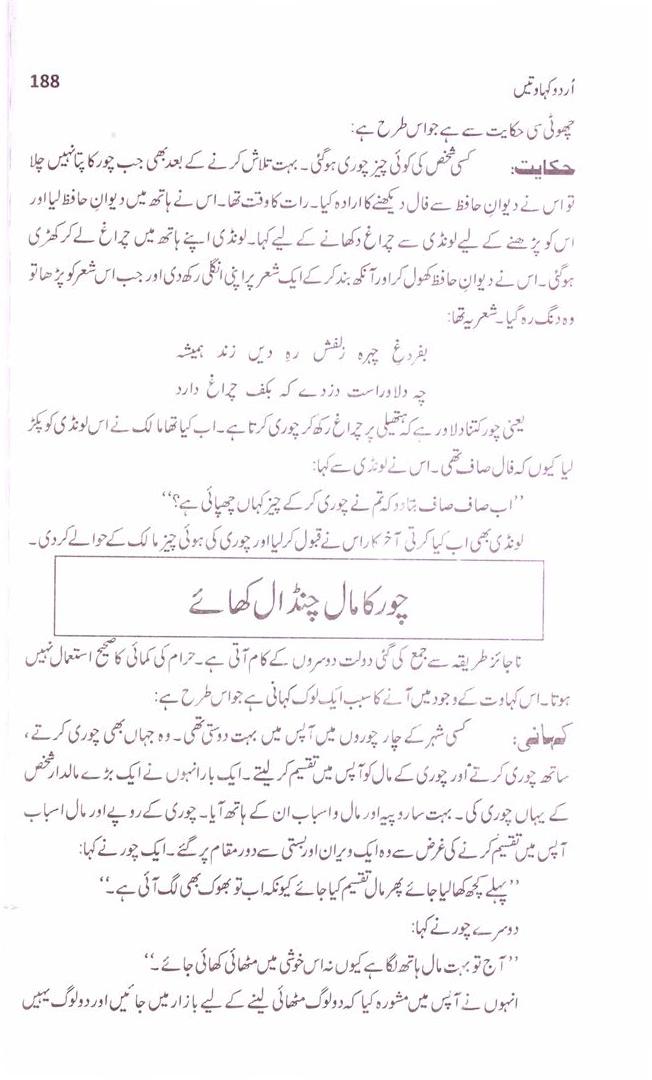 اُردو کہاوتیں
188
چھوٹی سی حکایت سے ہے جو اس طرح ہے:
حکایت: کسی شخص کی کوئی چیز چوری ہوگئی۔ بہت تلاش کرنے کے بعد بھی جب چور کا پتا نہیں چلا
تو اس نے دیوانِ حافظ سے فال دیکھنے کا ارادہ کیا۔ رات کا وقت تھا۔ اس نے ہاتھ میں دیوانِ حافظ لیا اور
اس کو پڑھنے کے لیے لونڈی سے چراغ دکھانے کے لیے کہا۔ لونڈی اپنے ہاتھ میں چراغ لے کر کھڑی
ہوگئی۔ اس نے دیوانِ حافظ کھول کر اور آنکھ بند کرکے ایک شعر پر اپنی انگلی رکھ دی اور جب اس شعر کو پڑھا تو
وہ دنگ رہ گیا۔ شعر یہ تھا:
بفردغِ چہرہ زلفش رہِ دیں زند ہمیشہ
چہ دلاوراست دزدے کہ بکف چراغ دارد
یعنی چور کتنا دلاور ہے کہ ہتھیلی پر چراغ رکھ کر چوری کرتا ہے۔ اب کیا تھا مالک نے اس لونڈی کو پکڑ
لیا کیوں کہ فال صاف تھی۔ اس نے لونڈی سے کہا:
’’اب صاف صاف بتادو کہ تم نے چوری کرکے چیز کہاں چھپائی ہے؟‘‘
لونڈی بھی اب کیا کرتی آخر کار اس نے قبول کرلیا اور چوری کی ہوئی چیز مالک کے حوالے کردی۔
چور کا مال چنڈال کھائے
ناجائز طریقہ سے جمع کی گئی دولت دوسروں کے کام آتی ہے۔ حرام کی کمائی کا صحیح استعمال نہیں
ہوتا۔ اس کہاوت کے وجود میں آنے کا سبب ایک لوک کہانی ہے جو اس طرح ہے:
کہانی: کسی شہر کے چار چوروں میں آپس میں بہت دوستی تھی۔ وہ جہاں بھی چوری کرتے،
ساتھ چوری کرتے اور چوری کے مال کو آپس میں تقسیم کرلیتے۔ ایک بار انہوں نے ایک بڑے مالدار شخص
کے یہاں چوری کی۔ بہت سا روپیہ اور مال و اسباب ان کے ہاتھ آیا۔ چوری کے روپے اور مال اسباب
آپس میں تقسیم کرنے کی غرض سے وہ ایک ویران اور بستی سے دور مقام پر گئے۔ ایک چور نے کہا:
’’پہلے کچھ کھالیا جائے پھر مال تقسیم کیا جائے کیونکہ اب تو بھوک بھی لگ آئی ہے۔‘‘
دوسرے چور نے کہا:
’’آج تو بہت مال ہاتھ لگا ہے کیوں نہ اس خوشی میں مٹھائی کھائی جائے۔‘‘
انہوں نے آپس میں مشورہ کیا کہ دو لوگ مٹھائی لینے کے لیے بازار میں جائیں اور دو لوگ یہیں